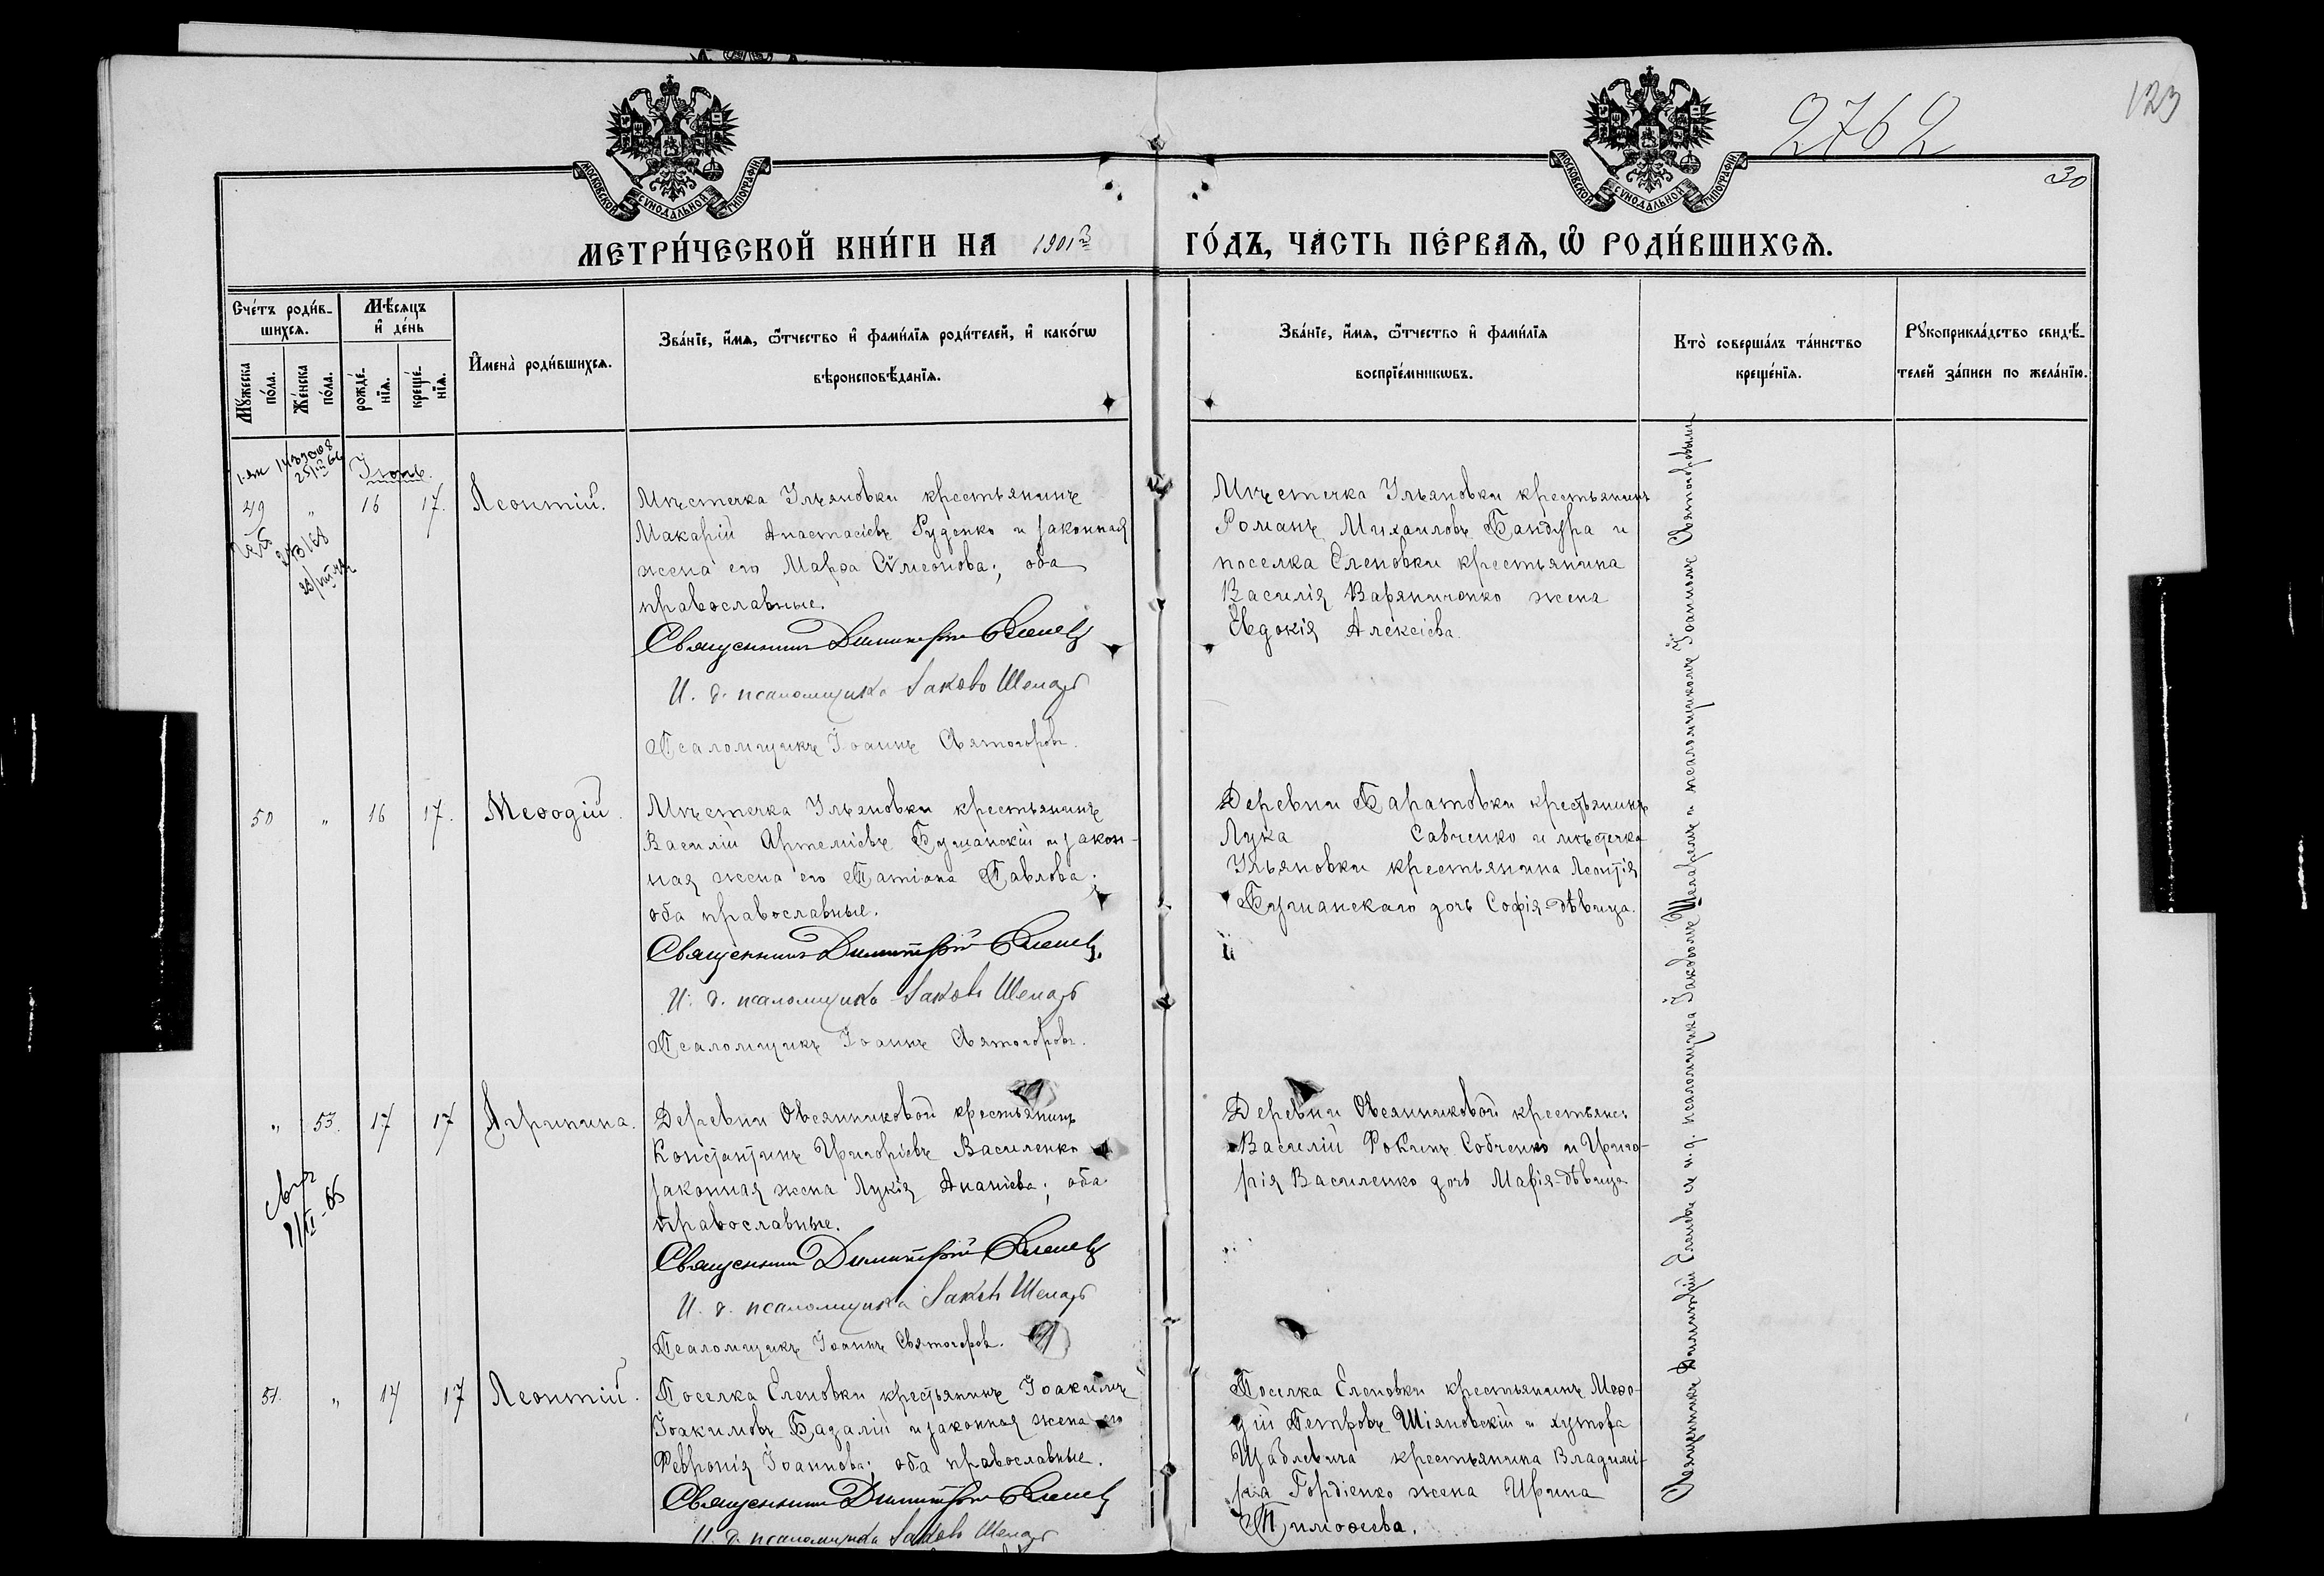 МОСКОВСКОЙ СѴНОДАЛЬНОЙ ТИПОГРАФІИ
МОСКОВСКОЙ СѴНОДАЛЬНОЙ ТИПОГРАФІИ
2762
123
30
МЕТРИ́ЧЕСКОЙ КНИ́ГИ НА 1901
ГО́ДЪ, ЧА́СТЬ ПЕ́РВАѦ, Ѿ РОДИ́ВШИХСѦ.
Сче́тъ роди́в-
шихсѧ.
Мꙋжеска
по́ла.
Же́нска
по́ла.
Мѣ́сѧцъ
и҆ де́нь
рожде́-
нїѧ.
креще́-
нїѧ.
И҆мена̀ роди́вшихсѧ.
Зва́нїе, и҆́мѧ, ѻ҆́тчество и҆ фами́лїѧ роди́телей, и҆ како́гѡ
вѣроисповѣ́данїѧ.
Зва́нїе, и҆́мѧ, ѻ҆́тчество и҆ фами́лїѧ
воспрїе́мникѡвъ.
Кто̀ соверша́лъ та́инство
креще́нїѧ.
Рꙋкоприкла́дство свидѣ́-
телей за́писи по жела́нїю.
49 " 16 17. Леонтій.
Мѣстечка Ульяновки крестьянинъ
Макарій Анастасіевъ Руденко и законная
жена его Марѳа Сѵмеонова; оба
православные.
Священникъ Димитрій Еленевъ
И. д. псаломщика Іаковъ Шепарь
Псаломщикъ Іоаннъ Святогоровъ.
Мѣстечка Ульяновки крестьянинъ
Романъ Михаиловъ Бандура и
поселка Еленовки крестьянина
Василія Варяниченко жена
Евдокія Алексіева.
50 " 16 17. Меѳодій.
Мѣстечка Ульяновки крестьянинъ
Василій Артеміевъ и закон-
ная жена его Татіана Павлова;
оба православные.
Священникъ Димитрій Еленевъ
И. д. псаломщика Іаковъ Шепарь
Псаломщикъ Іоаннъ Святогоровъ.
Деревни Баратовки крестьянинъ
Лука Савченко и мѣстечка
Ульяновки крестьянина Леонтія
дочь Софія-дѣвица.
" 53. 17 17 Агрипина.
Деревни Овсянниковой крестьянинъ
Константинъ Григоріевъ Василенко и
законная жена Лукія Ананіева; оба
православные.
Священникъ Димитрій Еленевъ
И. д. псаломщика Іаковъ Шепарь
Псаломщикъ Іоаннъ Святогоровъ.
Деревни Овсянниковой крестьяне:
Василій Фокинъ Собченко и Григо-
рія Василенко дочь Марія-дѣвица
51. " 17 17 Леонтій.
Поселка Еленовки крестьянинъ Іоакимъ
Іоакимовъ Бадалій и законная жена его
Февронія Іоаннова; оба православные.
Священникъ Димитрій Еленевъ
И. д. псаломщика Іаковъ Шепарь
Поселка Еленовки крестьянинъ Меѳо-
дій Петровъ Шіяновскій и хутора
крестьянина Владимі-
ра Гордіенко жена Ирина
Тимоѳеева.
Священникъ Димитрій Еленевъ съ и. д. псаломщика Іаковомъ Шепаремъ и псаломщикомъ Іоанномъ Святогоровымъ